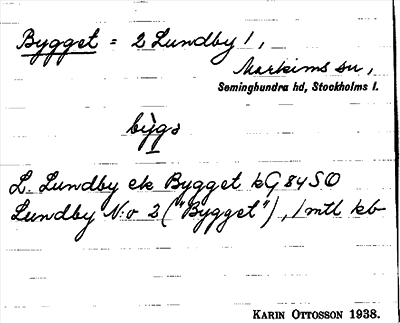 Bygget = 2 Lundby 1,
Markims sn,
Seminghundra hd, Stockholms l.
bygs
L. Lundby ek Bygget kG 84 SO
Lundby N:o 2 ("Bygget"), 1 mtl kb
KARIN OTTOSSON 1938.